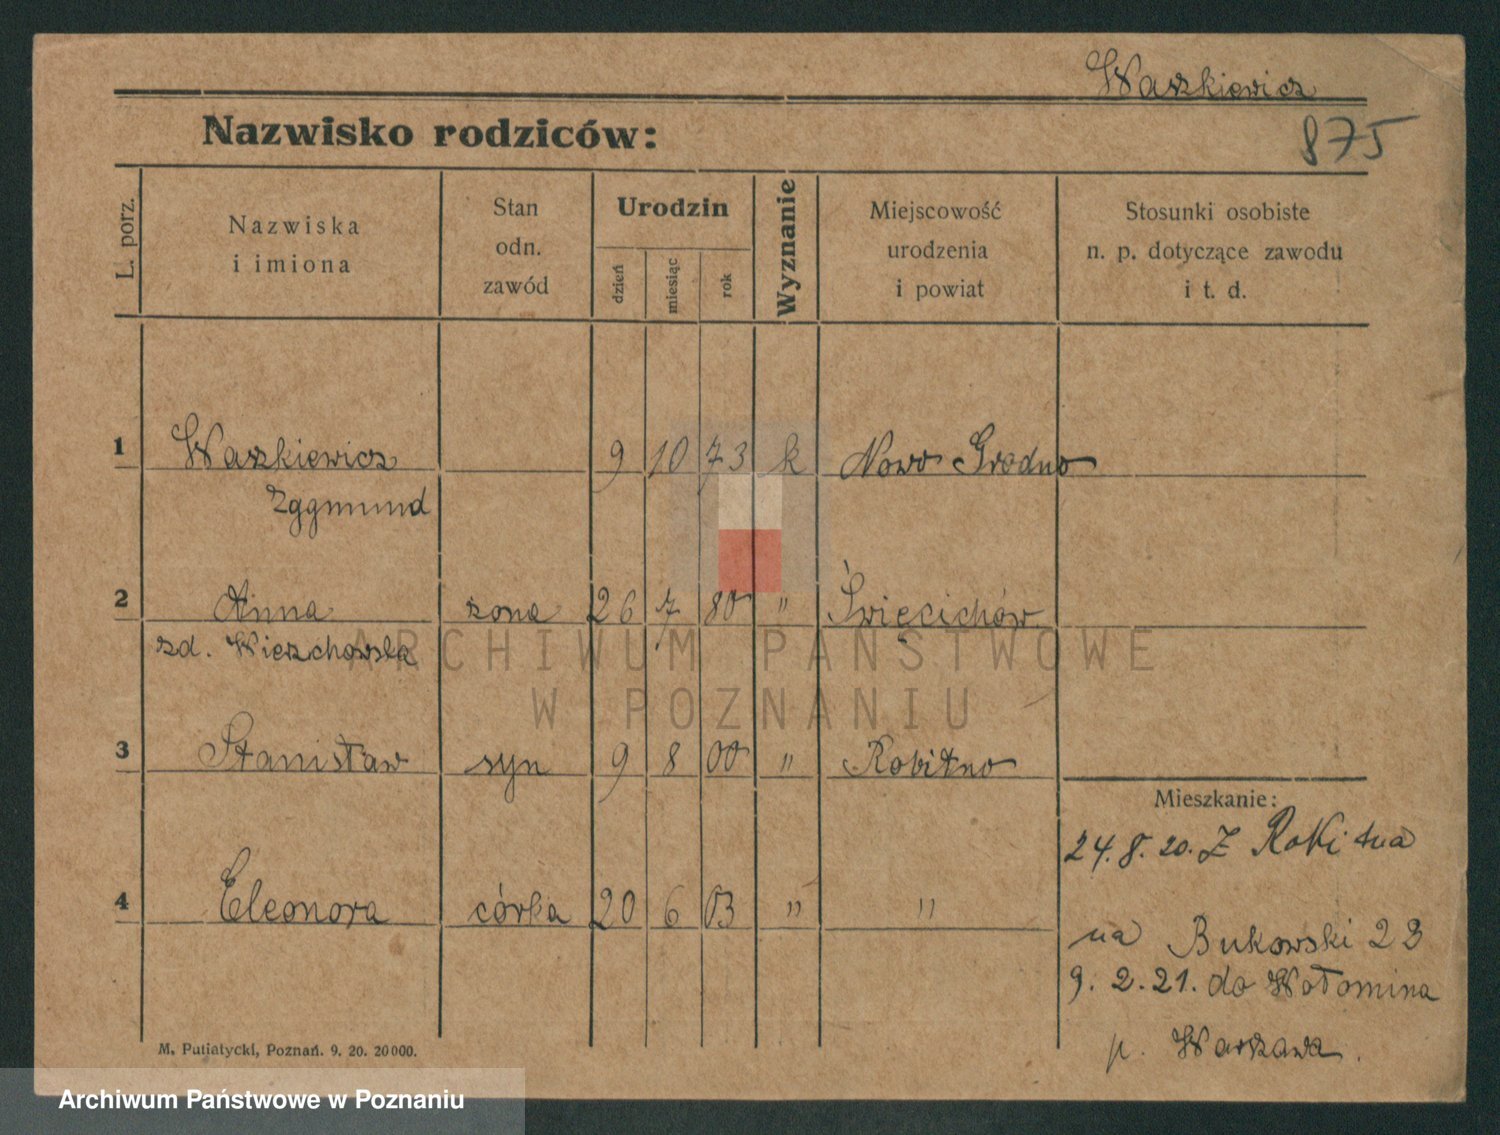 Waszkiewicz
Nazwisko rodziców:
875
L. porz.
Nazwiska
i imiona
Stan
odn.
zawód
Urodzin
dzień
miesiąc
rok
Wyznanie
Miejscowość
urodzenia
i powiat
Stosunki osobiste
n. p. dotyczące zawodu
i t. d.
1 Waszkiewicz 9 10 73 k Nowo Grodno
Zygmund
2 Anna żona 26 7 80 " Święcichów
zd. Wierzchowska
ARCHIWUM PAŃSTWOWE
W POZNANIU
3 Stanisław syn 9 8 00 " Rokitno
Mieszkanie:
24.8.20. Z Rokitna
4 Eleonora córka 20 6 03 " "
na Bukowski 23
9.2.21. do Wołomina
p. Warszawa.
M. Putiatycki, Poznań. 9. 20. 20000.
Archiwum Państwowe w Poznaniu